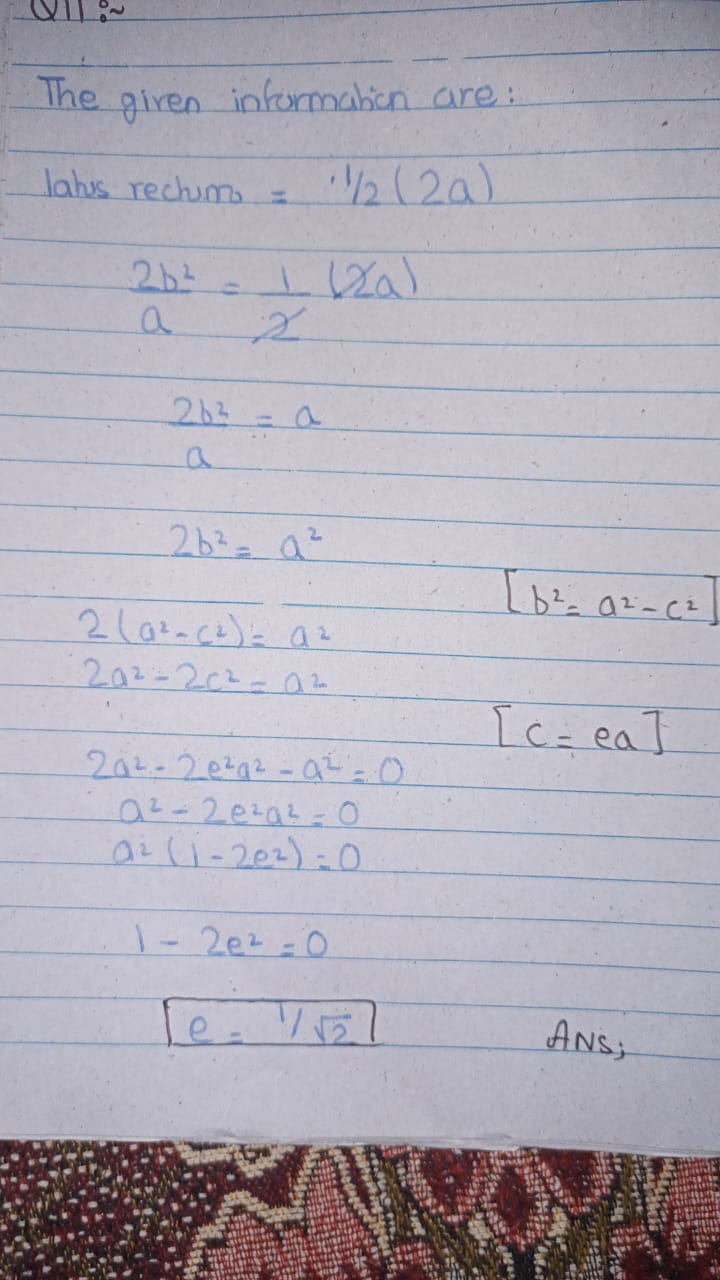 Q11:~
The given information are:
latus rectum = 1/2 (2a)
2b²/a = 1/2 (2a)
2b²/a = a
2b² = a²
[b² = a² - c²]
2(a² - c²) = a²
2a² - 2c² = a²
[c = ea]
2a² - 2e²a² - a² = 0
a² - 2e²a² = 0
a² (1 - 2e²) = 0
1 - 2e² = 0
e = 1/√2 ANS;